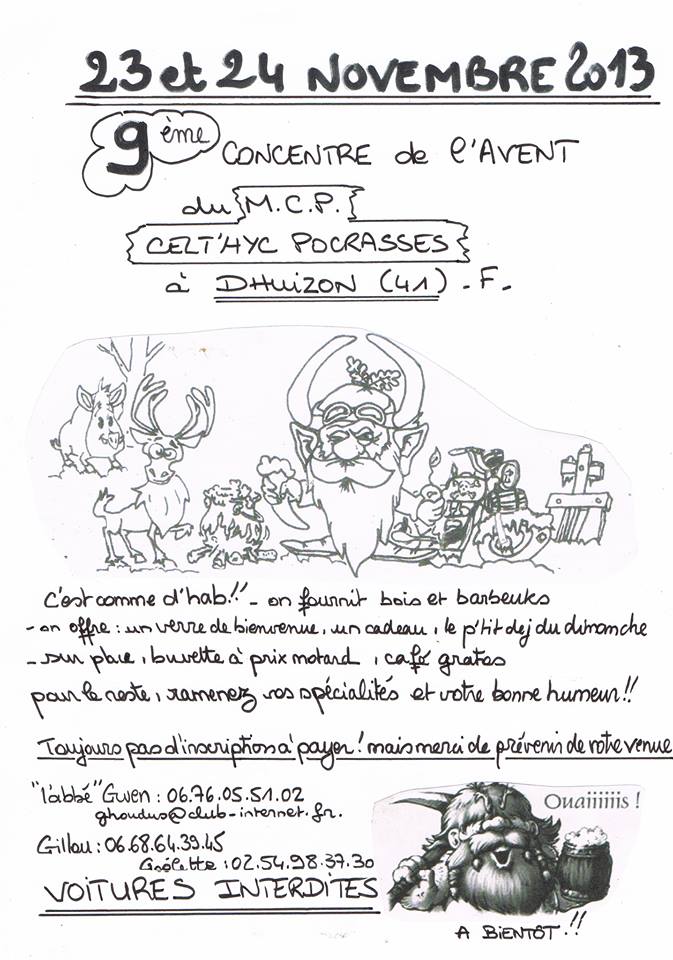 23 et 24 NOVEMBRE 2013
9ème CONCENTRE de l'AVENT
du M.C.P.
CELT'HYC POCRASSES
à DHUIZON (41) - F -
C'est comme d'hab!! - on fournit bois et barbeuks
- on offre : un verre de bienvenue, un cadeau, le p'tit dej du dimanche
- sur place, buvette à prix motard, café gratos
pour le reste, ramenez vos spécialités et votre bonne humeur!!
Toujours pas d'inscription à payer! mais merci de prévenir de votre venue
"l'abbé" Gwen : 06.76.05.51.02
ghoudus@club-internet.fr.
Gillou : 06.68.64.39.45
Goélette : 02.54.98.37.30
VOITURES INTERDITES
Ouaiiiiiis !
A BIENTÔT !!